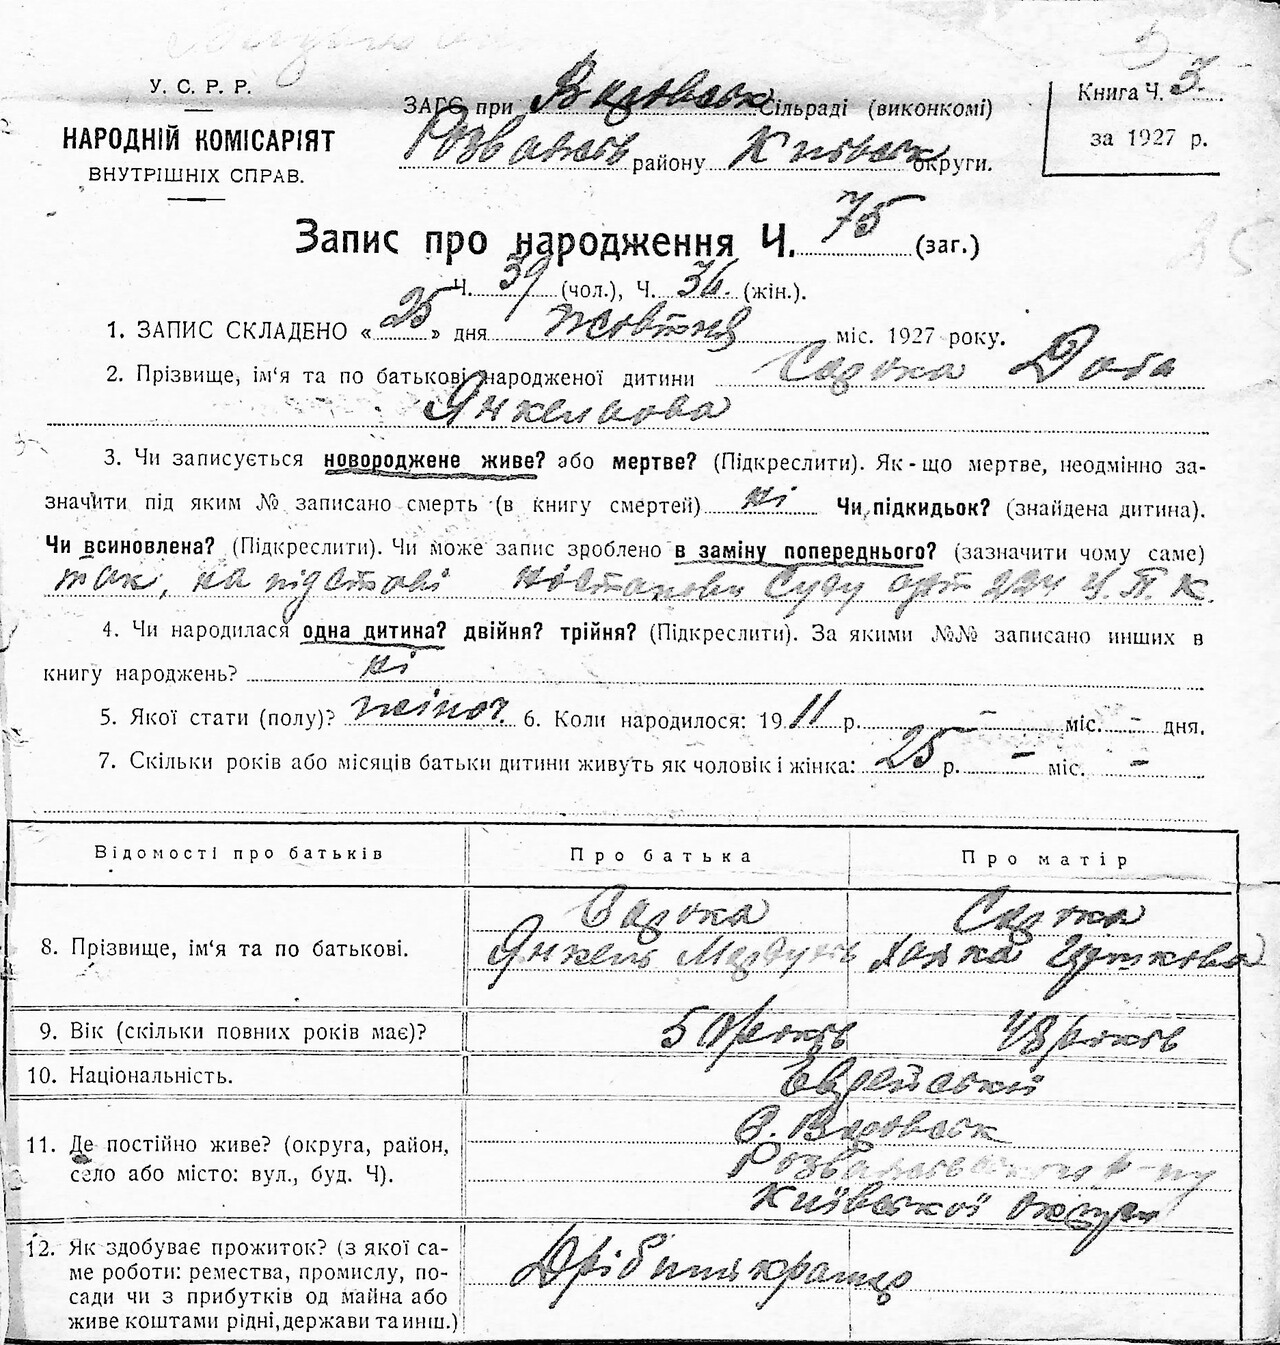 У. С. Р. Р.
НАРОДНІЙ КОМІСАРІЯТ
ВНУТРІШНІХ СПРАВ.
ЗАГС при Варовськ Сільраді (виконкомі)
Розважів району Київськ округи.
Книга Ч. 3.
за 1927 р.
Запис про народження Ч. 75 (заг.)
Ч. 39 (чол.), Ч. 36. (жін.).
1. ЗАПИС СКЛАДЕНО «25» дня жовтня міс. 1927 року.
2. Прізвище, ім‘я та по батькові народженої дитини
Янкельова
3. Чи записується новороджене живе? або мертве? (Підкреслити). Як-що мертве, неодмінно за-
значити під яким № записано смерть (в книгу смертей) ні Чи підкидьок? (знайдена дитина).
Чи всиновлена? (Підкреслити). Чи може запис зроблено в заміну попереднього? (зазначити чому саме)
так, на підставі постанови Суду арт 224 У.П.К.
4. Чи народилася одна дитина? двійня? трійня? (Підкреслити). За якими №№ записано инших в
книгу народжень? ні
5. Якої стати (полу)? жіноч. 6. Коли народилося: 1911 р. – міс. – дня.
7. Скільки років або місяців батьки дитини живуть як чоловік і жінка: 25 р. – міс. –
Відомості про батьків
Про батька
Про матір
8. Прізвище, ім‘я та по батькові.
Янкель
9. Вік (скільки повних років має)?
50 років
48 років
10. Національність.
Єврейської
11. Де постійно живе? (округа, район,
село або місто: вул., буд. Ч).
С. Варовськ
Розважівського р-ну
Київської округи
12. Як здобуває прожиток? (з якої са-
ме роботи: ремества, промислу, по-
сади чи з прибутків од майна або
живе коштами рідні, держави та инш.)